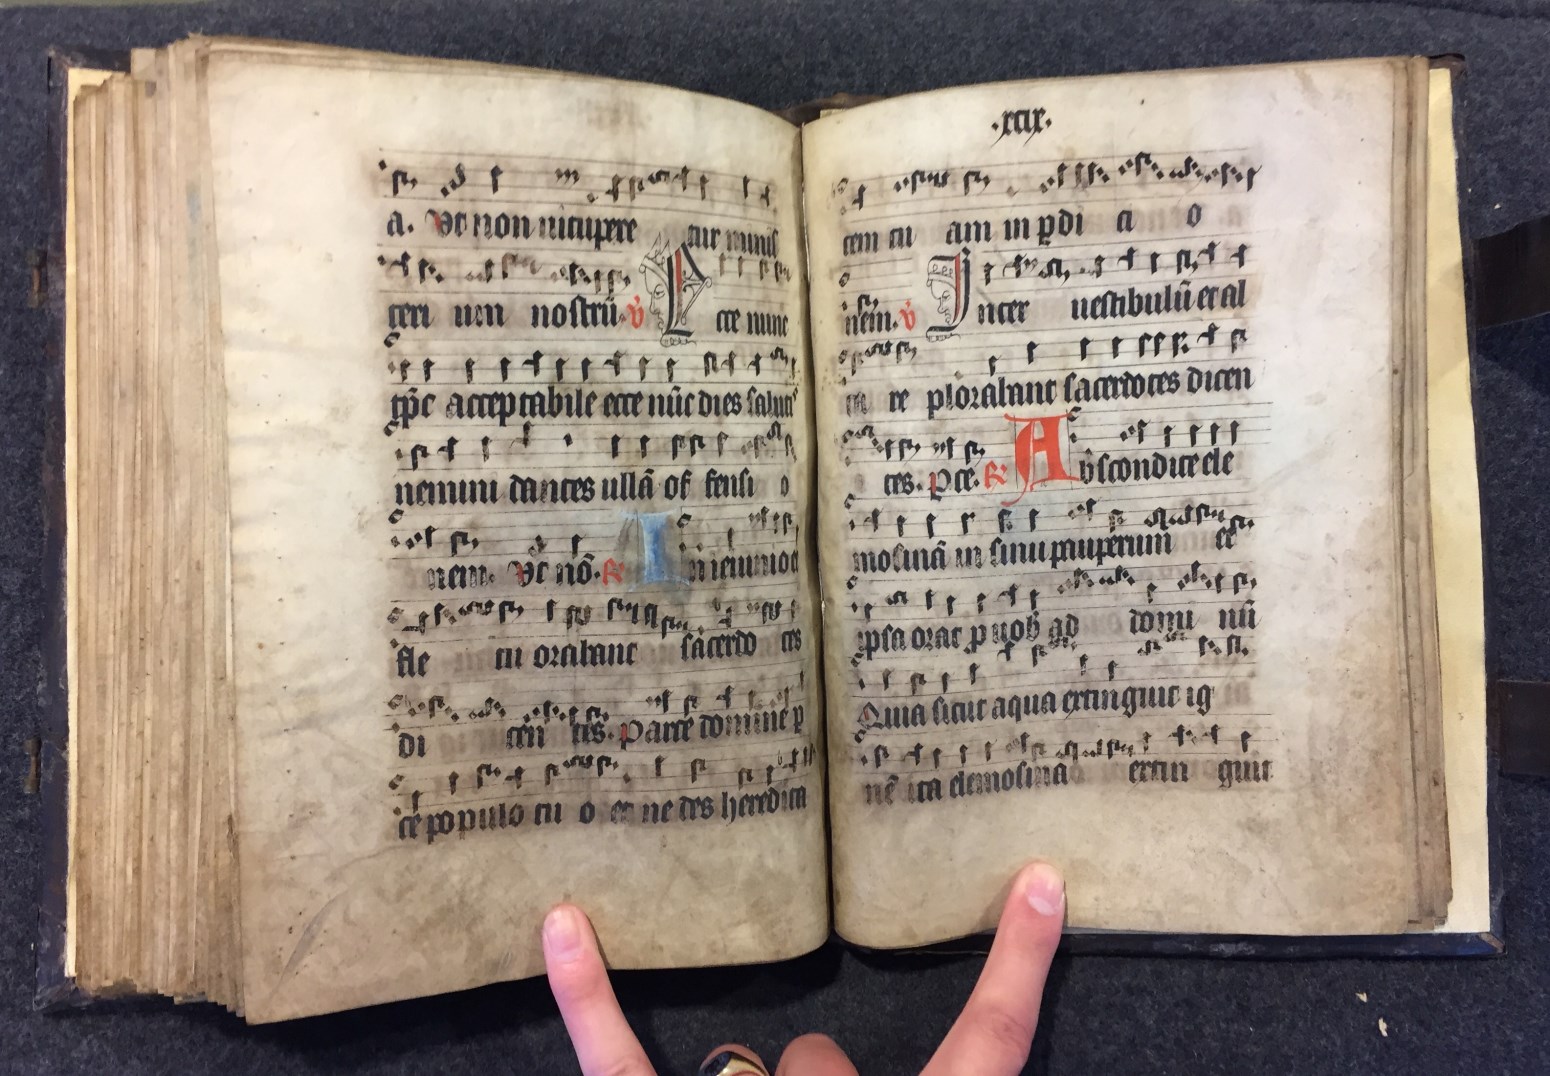 a. Vt non uitupere tur minis
teri um nostrū. v̄ Ecce nunc
tp̄c acceptabile ecce nūc dies salut
nemini dantes ullā of fensi o
nem. Vt nō. R Inieiunio ⁊
fle tu orabant sacerdo tes
di cen tes. Parce domine p
ce populo tu o et ne des heredita
·xcix·
tem tu am in ꝑdi ci o
nem. v̄ Inter uestibulū et al
ta re plorabant sacerdotes dicen
tes. Pce. R Abscondite ele
mosinā in sinu pauperum et
ipsa orat p uob ad domi nū
Quia sicut aqua extinguit ig
nē ita elemosina extin guit